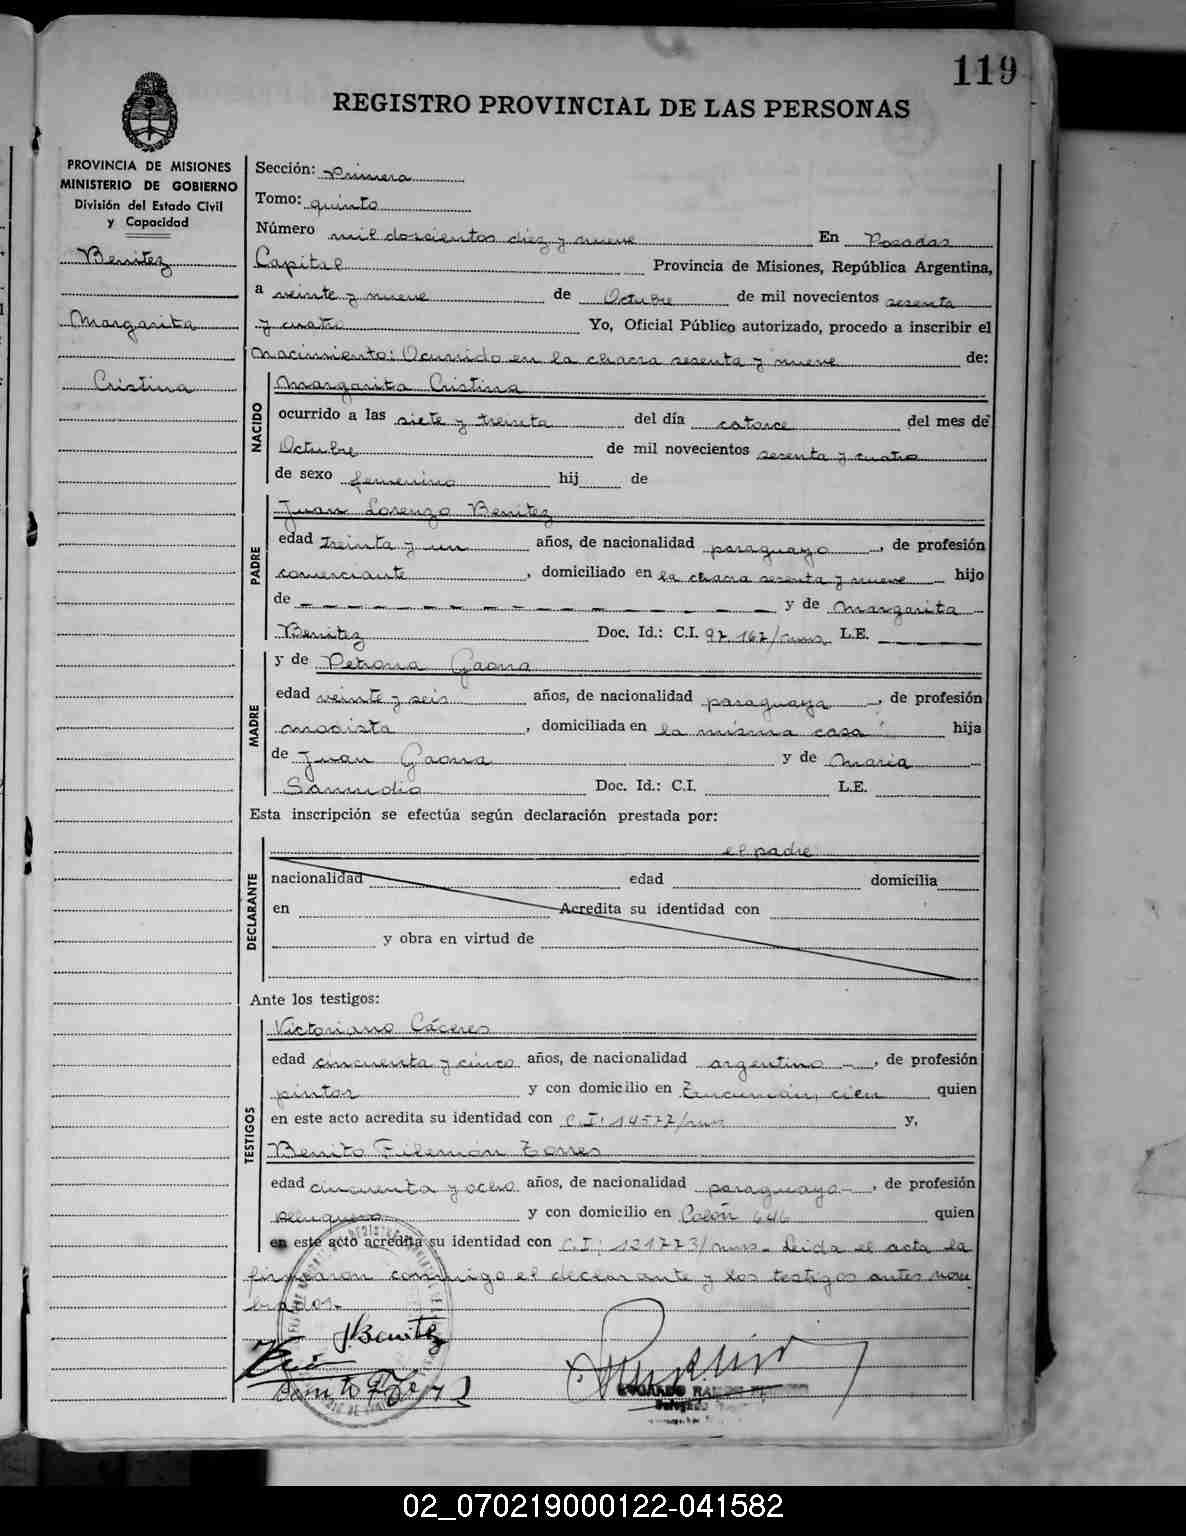 119
REGISTRO PROVINCIAL DE LAS PERSONAS
PROVINCIA DE MISIONES
MINISTERIO DE GOBIERNO
División del Estado Civil
y Capacidad
Benitez
Margarita
Cristina
Sección: Primera
Tomo: quinto
Número mil doscientos diez y nueve En Posadas
Capital Provincia de Misiones, República Argentina,
a veinte y nueve de Octubre de mil novecientos sesenta
y cuatro Yo, Oficial Público autorizado, procedo a inscribir el
Nacimiento: Ocurrido en la chacra sesenta y nueve de:
NACIDO
Margarita Cristina
ocurrido a las siete y treinta del día catorce del mes de
Octubre de mil novecientos sesenta y cuatro
de sexo femenino hij de
PADRE
Juan Lorenzo Benitez
edad treinta y un años, de nacionalidad paraguayo, de profesión
comerciante, domiciliado en la chacra sesenta y nueve hijo
de y de Margarita
Benitez Doc. Id.: C.I. 92.162/mns L.E.
MADRE
y de Petrona Gaona
edad veinte y seis años, de nacionalidad paraguaya, de profesión
modista, domiciliada en la misma casa hija
de Juan Gaona y de Maria
Samudio Doc. Id.: C.I. L.E.
Esta inscripción se efectúa según declaración prestada por:
DECLARANTE
el padre
nacionalidad edad domicilia
en Acredita su identidad con
y obra en virtud de
Ante los testigos:
TESTIGOS
Victoriano Cáceres
edad cincuenta y cinco años, de nacionalidad argentino, de profesión
pintor y con domicilio en Tucumán, cien quien
en este acto acredita su identidad con C.I: 14577/mns y,
Benito Filemón Torres
edad cincuenta y ocho años, de nacionalidad paraguayo, de profesión
peluquero y con domicilio en Colón 646 quien
en este acto acredita su identidad con C.I; 121773/mns. Leida el acta la
firmaron conmigo el declarante y los testigos antes nom
brados.
J Benitez
Benito F Torres
02_070219000122-041582